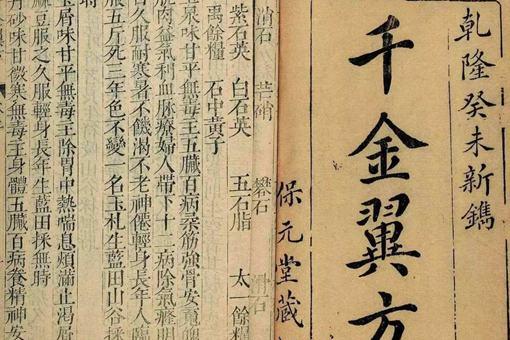 乾隆癸未新鐫
千金翼方
保元堂藏
消石 芒硝 礬石 滑石
紫石英 白石英 五石脂 太一餘糧
禹餘糧 石中黃子
玉泉味甘平無毒主五臟百病柔筋強骨安魂
肌肉益氣利血脉療婦人帶下十二病除氣癃明
久服耐寒暑不飢渴不老神僊輕身長年人臨
服五斤死三年色不變一名玉札生藍田山谷採
時
玉屑味甘平無毒主除胃中熱喘息煩滿止渴屑
麻豆服之久服輕身長年生藍田採無時
丹砂味甘微寒無毒主身體五臟百病養精神安